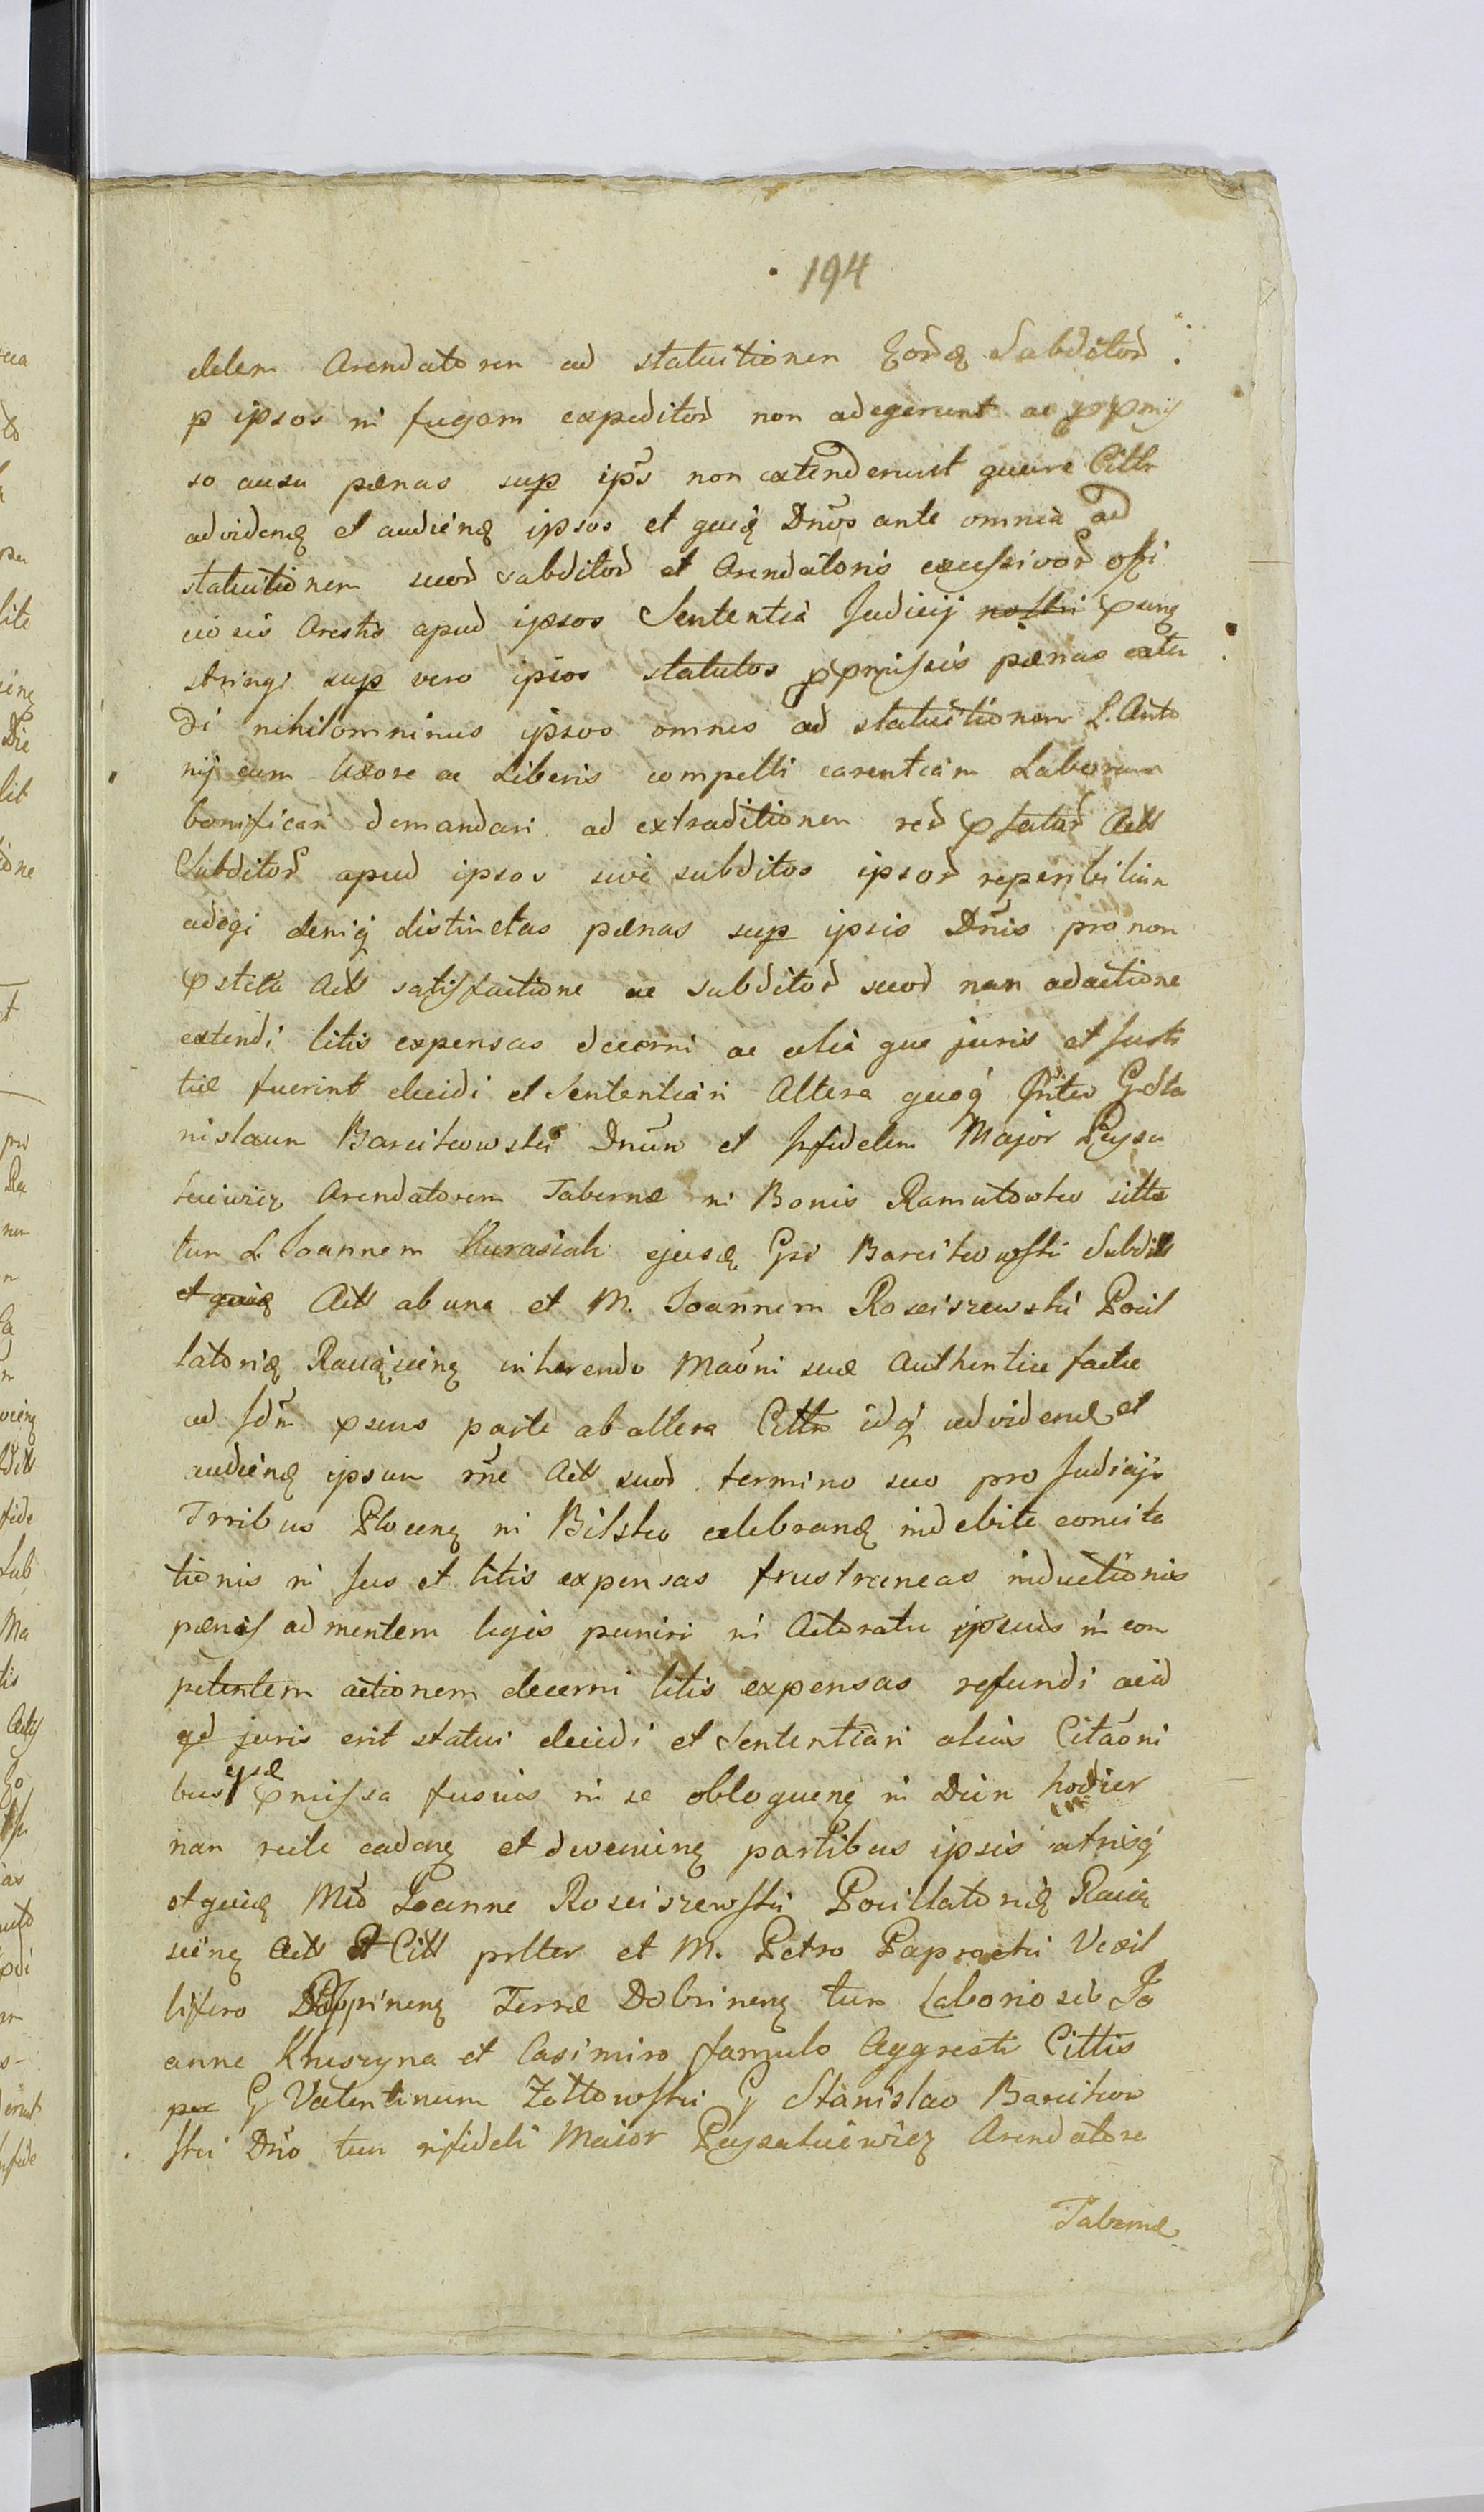 194
delem Arendatorem ad statuitionem Eord̃q Subditor̃
p ipsos in fugam expeditor̃ non adegerunt ac p p̃mis
so ausu pænas sup ip̃s non extenderunt quare Citt
ad videnq et audienq ipsos et quiq Dn̄os ante omnia ad
statuitionem suor̃ subditor̃ et Arendatoris excessivor̃ offi
ciosis Arestis apud ipsos Sententia Judicij nostri p̃sinq
stringi sup vero ipsos statutos p p̃missis pænas exten
di nihilominus ipsos omnes ad statuitionem L. Anto
nij cum Uxore ac Liberis compelli carentiam Laborum
bonificari demandari ad extraditionem rer̃ p̃fatar̃ Actt
Subditor̃ apud ipsos sive subditos ipsor̃ reperibilium
adegi deniq distinctas pænas sup ipsis Dn̄is pro non
p̃stita Actt satisfactione ac subditor̃ suor̃ non adactione
extendi litis expensas decerni ac alia que juris et Justi
tiæ fuerint decidi et Sententiari Altera quoq́ Inter G. Sta
nislaum Barcikowski Dn̄um et Infidelem Major Peysa
kiewicz Arendatorem Tabernæ in Bonis Ramutowko sitta
tum L. Joannem Kurasiak ejusq Gsi Barcikowski Subditt
et quiq Actt ab una et M. Joannem Rosciszewski Pocil
latoriq Raciąscienq inherendo Maōni suæ Authentice factæ
ad Id̃m p̃sens parte ab altera Citt idq́ ad vidend et
audienq ipsum rñe Actt suor̃ termino suo pro Judicijs
Trribus Plocenq in Bilsko celebranq indebite concita
tionis in Jus et litis expensas frustraneas inductionis
pænis ad mentem legis puniri in Actoratu ipsius in com
petentem actionem decerni litis expensas refundi acid
qd juris erit statui decidi et Sententiari alias Citaōni
bus ipsæ p̃missa fusius in se obloquenq in Diem hodier
nam recte cadenq et devenienq partibus ipsis utrisq́
et quiq Mco Joanne Rosciszewski Pocillatoriq Raciq
scienq Actt et Citt prlter et M. Petro Paprocki Vexil
lifero Rippinenq Terræ Dobrinenq tum Laboriosis Jo
anne Kruszyna et Casimiro famulo Aggresti Cittis
per G Valentinum Zołtowski G Stanislao Barcikow
ski Dn̄o tum infideli Maior Peysakiewicz Arendatore
Tabernæ